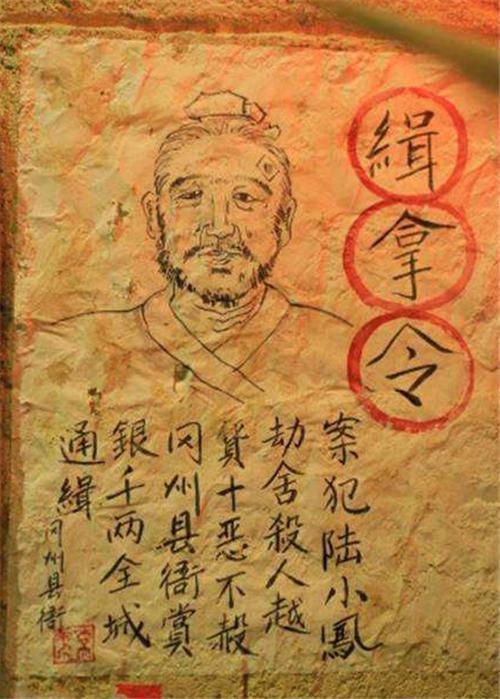 緝拿令
案犯陸小鳳
劫舍殺人越
貨十恶不赦
冈州县衙賞
銀千两全城
通緝
冈州县衙